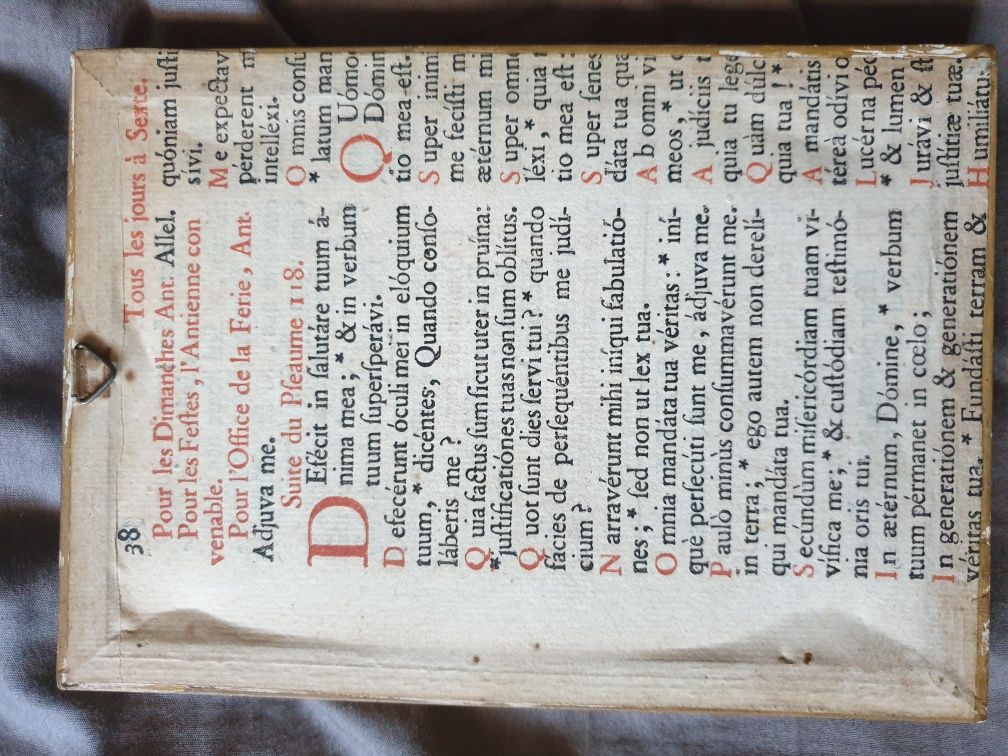 38
Tous les jours à Sexte.
Pour les Dimanches Ant. Allel.
Pour les Festes, l'Antienne con
venable.
Pour l'Office de la Ferie, Ant.
Adjuva me.
Suite du Pſeaume 118.
DEfécit in ſalutáre tuum á-
nima mea; * & in verbum
tuum ſuperſperávi.
Defecérunt óculi mei in elóquium
tuum, * dicéntes; Quando conſo-
láberis me?
Quia factus ſum ſicut uter in pruína:
* juſtificatiónes tuas non ſum oblítus.
Quot ſunt dies ſervi tui? * quando
facies de perſequéntibus me judí-
cium?
Narravérunt mihi iníqui fabulatió-
nes; * ſed non ut lex tua.
Omnia mandáta tua véritas: * iní-
què perſecúti ſunt me, ádjuva me.
Pauló minùs conſummavérunt me
in terra; * ego autem non derelí-
qui mandáta tua.
Secúndùm miſericórdiam tuam vi-
vífica me; * & cuſtódiam teſtimó-
nia oris tui.
In ætérnum, Dómine, * verbum
tuum pérmanet in cœlo;
In generatiónem & generationem
véritas tua. * Fundáſti terram &
quóniam juſti
sivi.
Me expectav
pérderent m
intelléxi.
Omnis conſu
* latum man
QUómo
Dómin
tio mea eſt.
Super inimi
me feciſti m
ætérnum mi
Super omne
léxi, * quia t
tio mea eſt.
Super ſenes
dáta tua quæ
Ab omni vi
meos, * ut c
A judíciis t
quia tu lege
Quàm dúlc
quia tua! *
A mandátis
téreà odívio
Lucérna péd
* & lumen
Jurávi & ſt
juſtítiæ tuæ.
Humiliátu